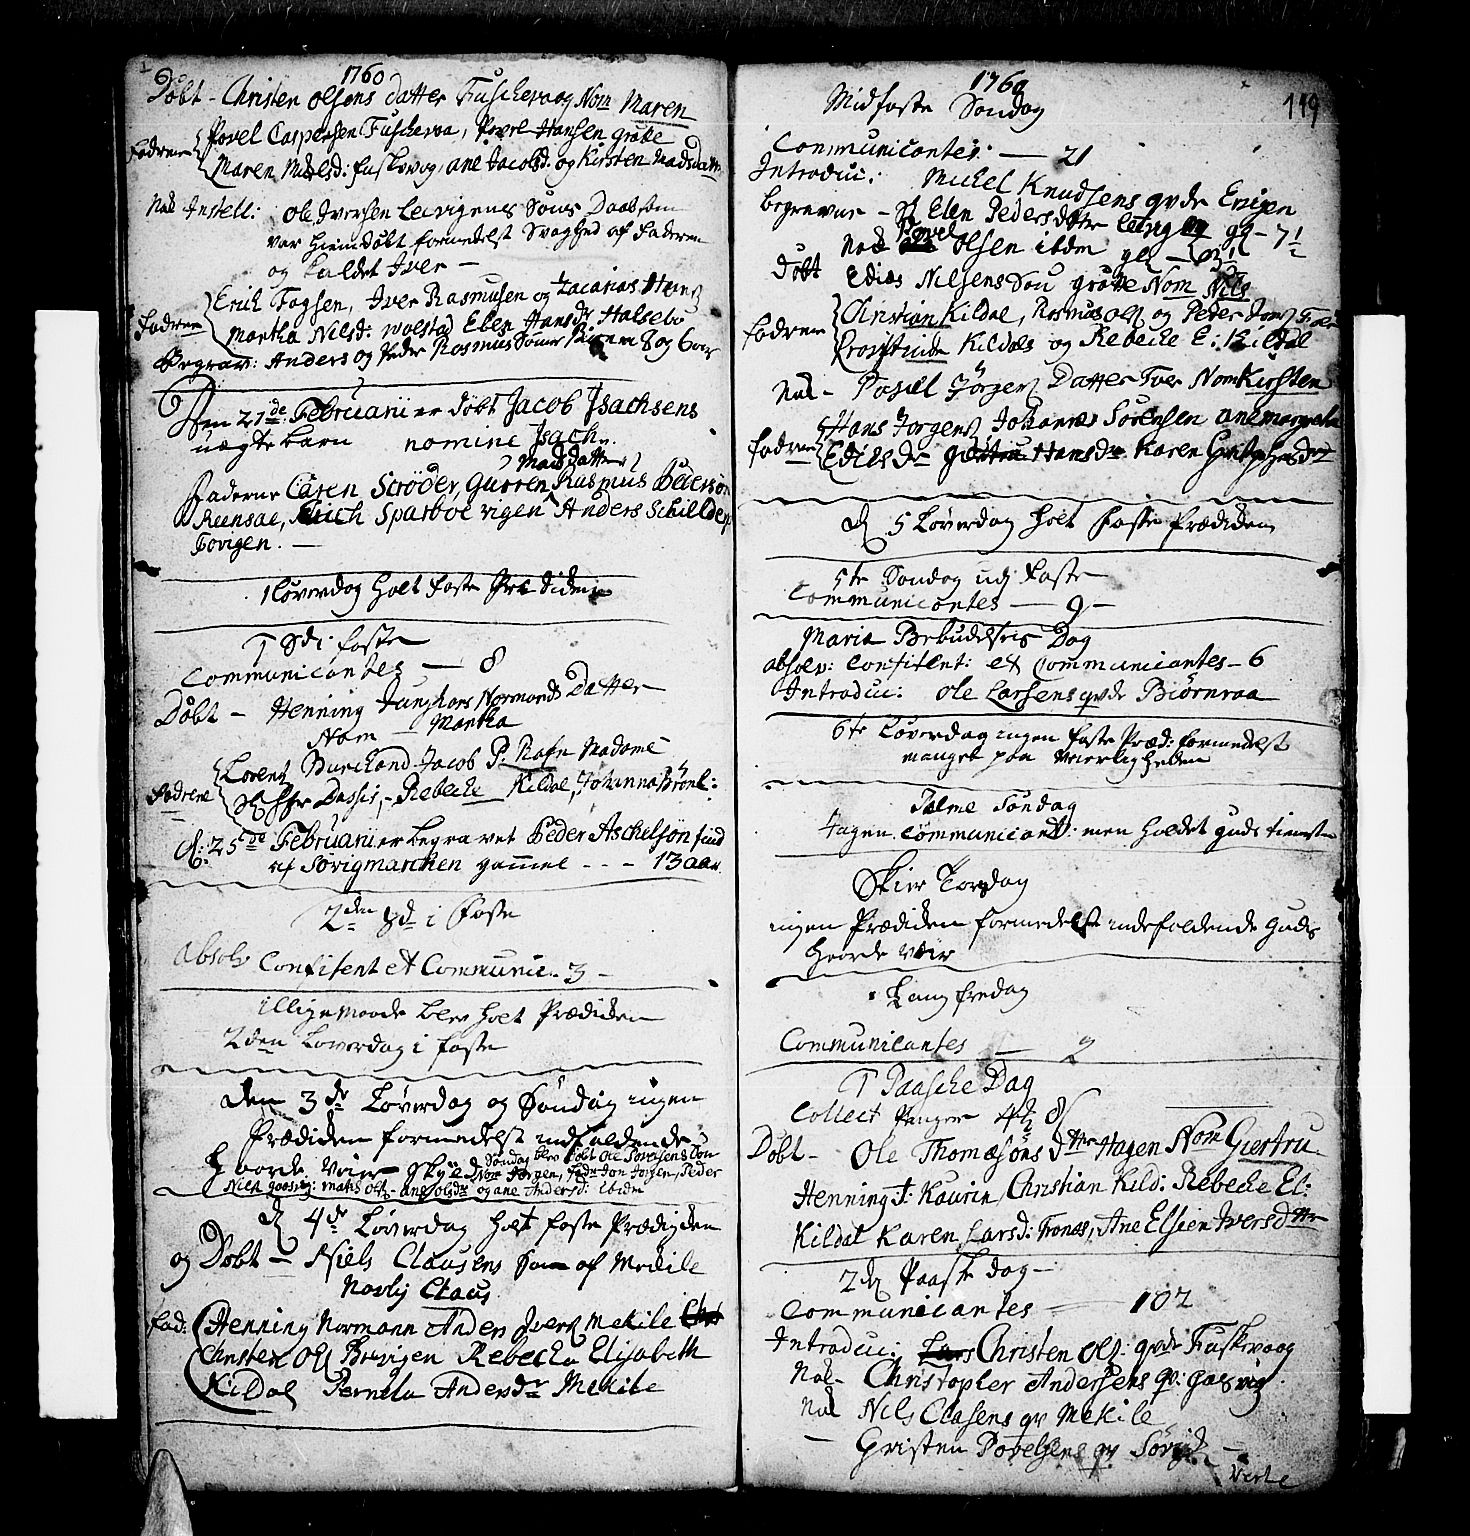 1760
Döbt - Christen Olsens datter Fuschevaog Nom Maren
Fadrene Povel Caspersen Fuschevaa, Povel Hansen grøtte
Maren Nilsd: Fuskvog, ane Jacobsd: og Kirsten Madsdatter
Nok Instell: Ole Iversen Leivigens Søns Daab som
var hiemdøbt formedelst Svaghed af Faderen
og kaldet Iver -
Fadrene Erich Fogsen, Iver Rasmusen og Zacarias
Martha Nilsd: Ellen Hansdr Halsebø
Begrav: Anders og Peder Rasmus Sønner 8 og 6 aar
Den 21de Februarii er döbt Jacob Jsachsens
uægte barn nomine Jsach.
Madsdatter
Faderne Caren Scröder, Gurren Rasmus Pederson
Reensaa, Erich Sparboe vigen Anders Schilder
Tovigen. -
1 Løverdag holt faste Prediken
1 Sdi faste
Communicantes - 8
Döbt - Henning Junghars Normands Datter
Nom - Martha
Fadrene Lorentz Burchard Jacob P: Rafn Madame
Dassis, - Rebecke Kildal, Johanna Brønl:
d: 25de Februarii er begravet Peder Aschelsön find
af Sörigmarchen gammel - - - 13 aar
2den Sd i Faste
Absolv Confitent et Communic. 3 -
illige maade blev holt Prædiken
2den Løverdag i faste
Den 3de Løverdag og Søndag ingen
Prædiken formedelst indfaldende
haarde Veir Søndag blev döbt Ole Sörensens Sön
Nom Jörgen, Fadr Jon Jörgen, Peder
og ane Andersd: ibidm
d 4de Løverdag holt faste Prædiken
og Döbt - Niels Clausens Søn af Mekile
Navlig Claus
Fad: Henning Normann Anders Iversz Mekile
Christen Ols Brevigen Rebecka Elisabeth
Kildal Pernela Andersdr Mekile
1760
119
Midfaste Søndag
Communicantes. - 21
Introduc: Mickel Knudsens qvde Evigen
begravne - Elen Pedersdatter Leivig gl - 71
Nok Povel Olsen ibdm gl -
döbt Edias Nilsens Søn grøtte Nom Nils
Fadrene Christian Kildal, Rasmus Ols og Peder
Kildals og Rebecke E: Kildal
Nok - Povel Jörgens Datter Nom Kirsten
Fadrene Hans Jorgens Johannes Sörensen anemargreta
Edilsdr Hansdr Karen
d 5 Løverdag holt faste Prædiken
5te Søndag udj Faste
Communicantes - 9 -
Mariæ Bebudelses Dag
absolv: confitent: et Communicantes - 6
Introduc: Ole Larsens qvde Biörnraa
6te Løverdag ingen faste Præd: formedelst
manget paa Veierligheden
Palme Søndag
Ingen communicant: men holdet guds tieneste
Skier Torsdag
ingen Prædiken formedelst indfaldende Guds
haarde Veir
Lang fredag
Communicantes - 2
1 Paasche Dag
Collect Penger 4½
Döbt - Ole Thomæsöns dttr Hagen Nom Giertru.
Henning J: Kaurin, Christian Kild: Rebecke El:
Kildal Karen Larsd: Trones, Ane Elsien Iversdttr
2de Paaske dag -
Communicantes - 102
Introduc: Christen Ols: qvde Fuskevaag
Nok - Christopher Andersens qv: gaasvig
Nok Nils Clasens qv Mekile
- Gristen Povelsens qv Sørvig -
Verte